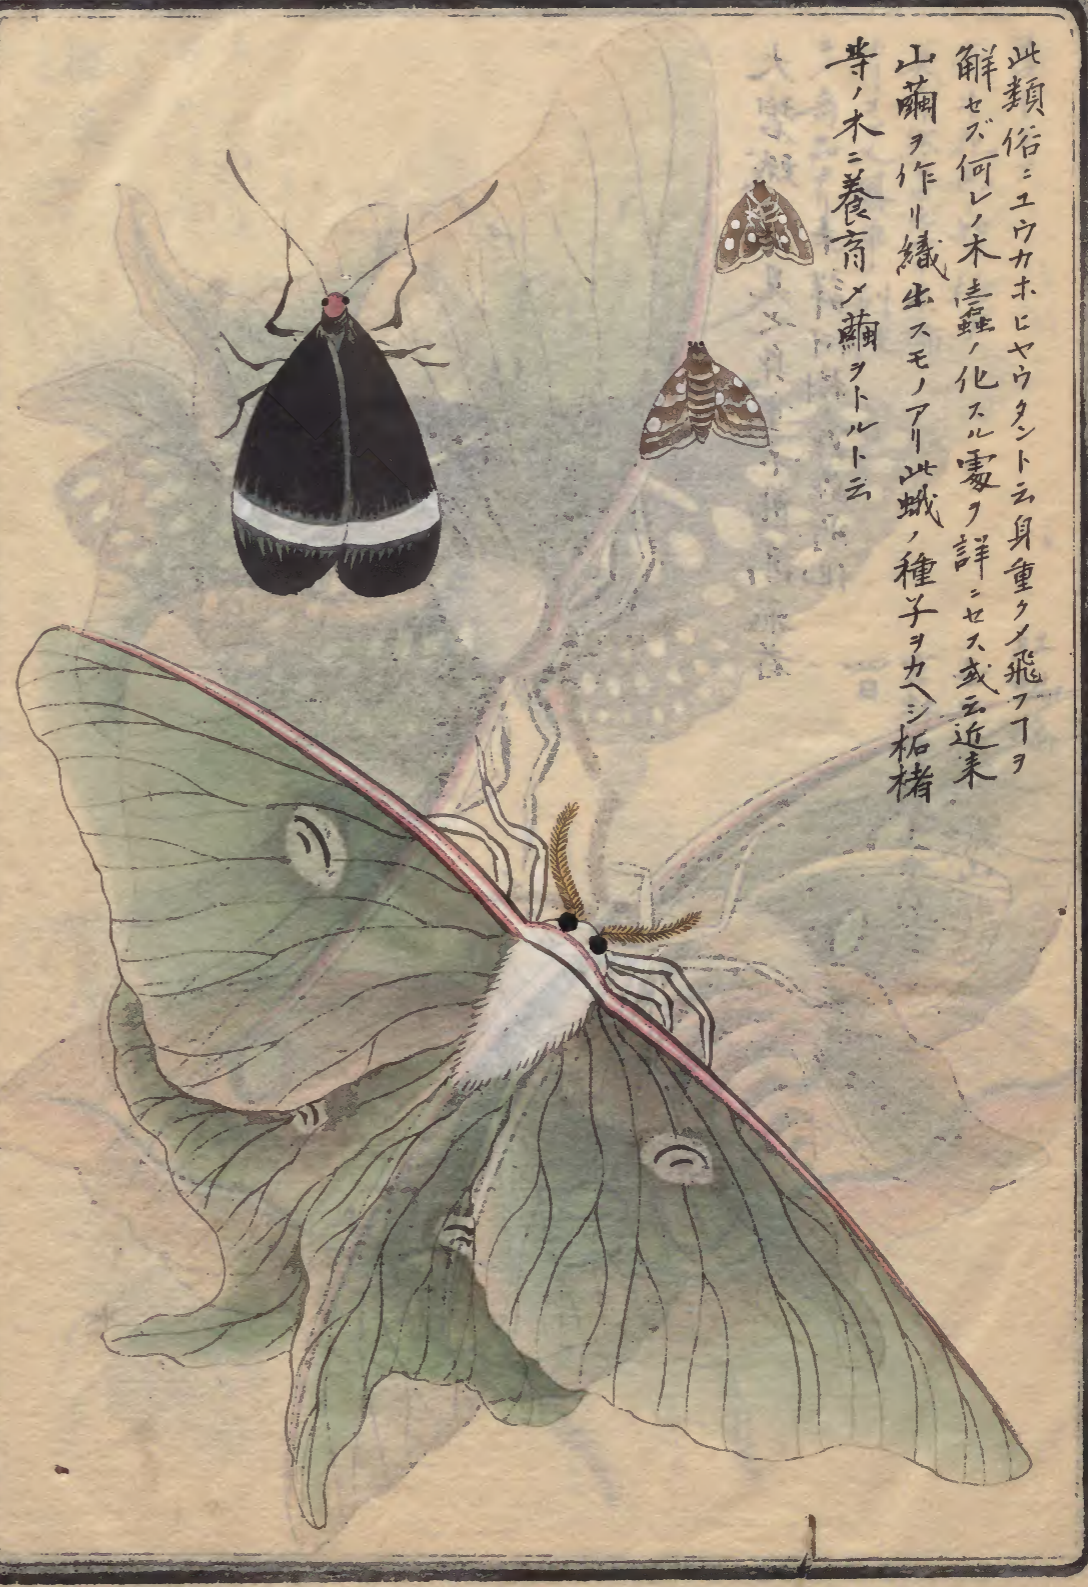 此類俗ニユウカホヒヤウタント云身重クメ飛フヿヲ
解セズ何レノ木蠹ノ化スル處ヲ詳ニセス或云近来
山繭ヲ作リ織出スモノアリ此蛾ノ種子ヲカヘシ柘楮
等ノ木ニ養育メ繭ヲトルト云